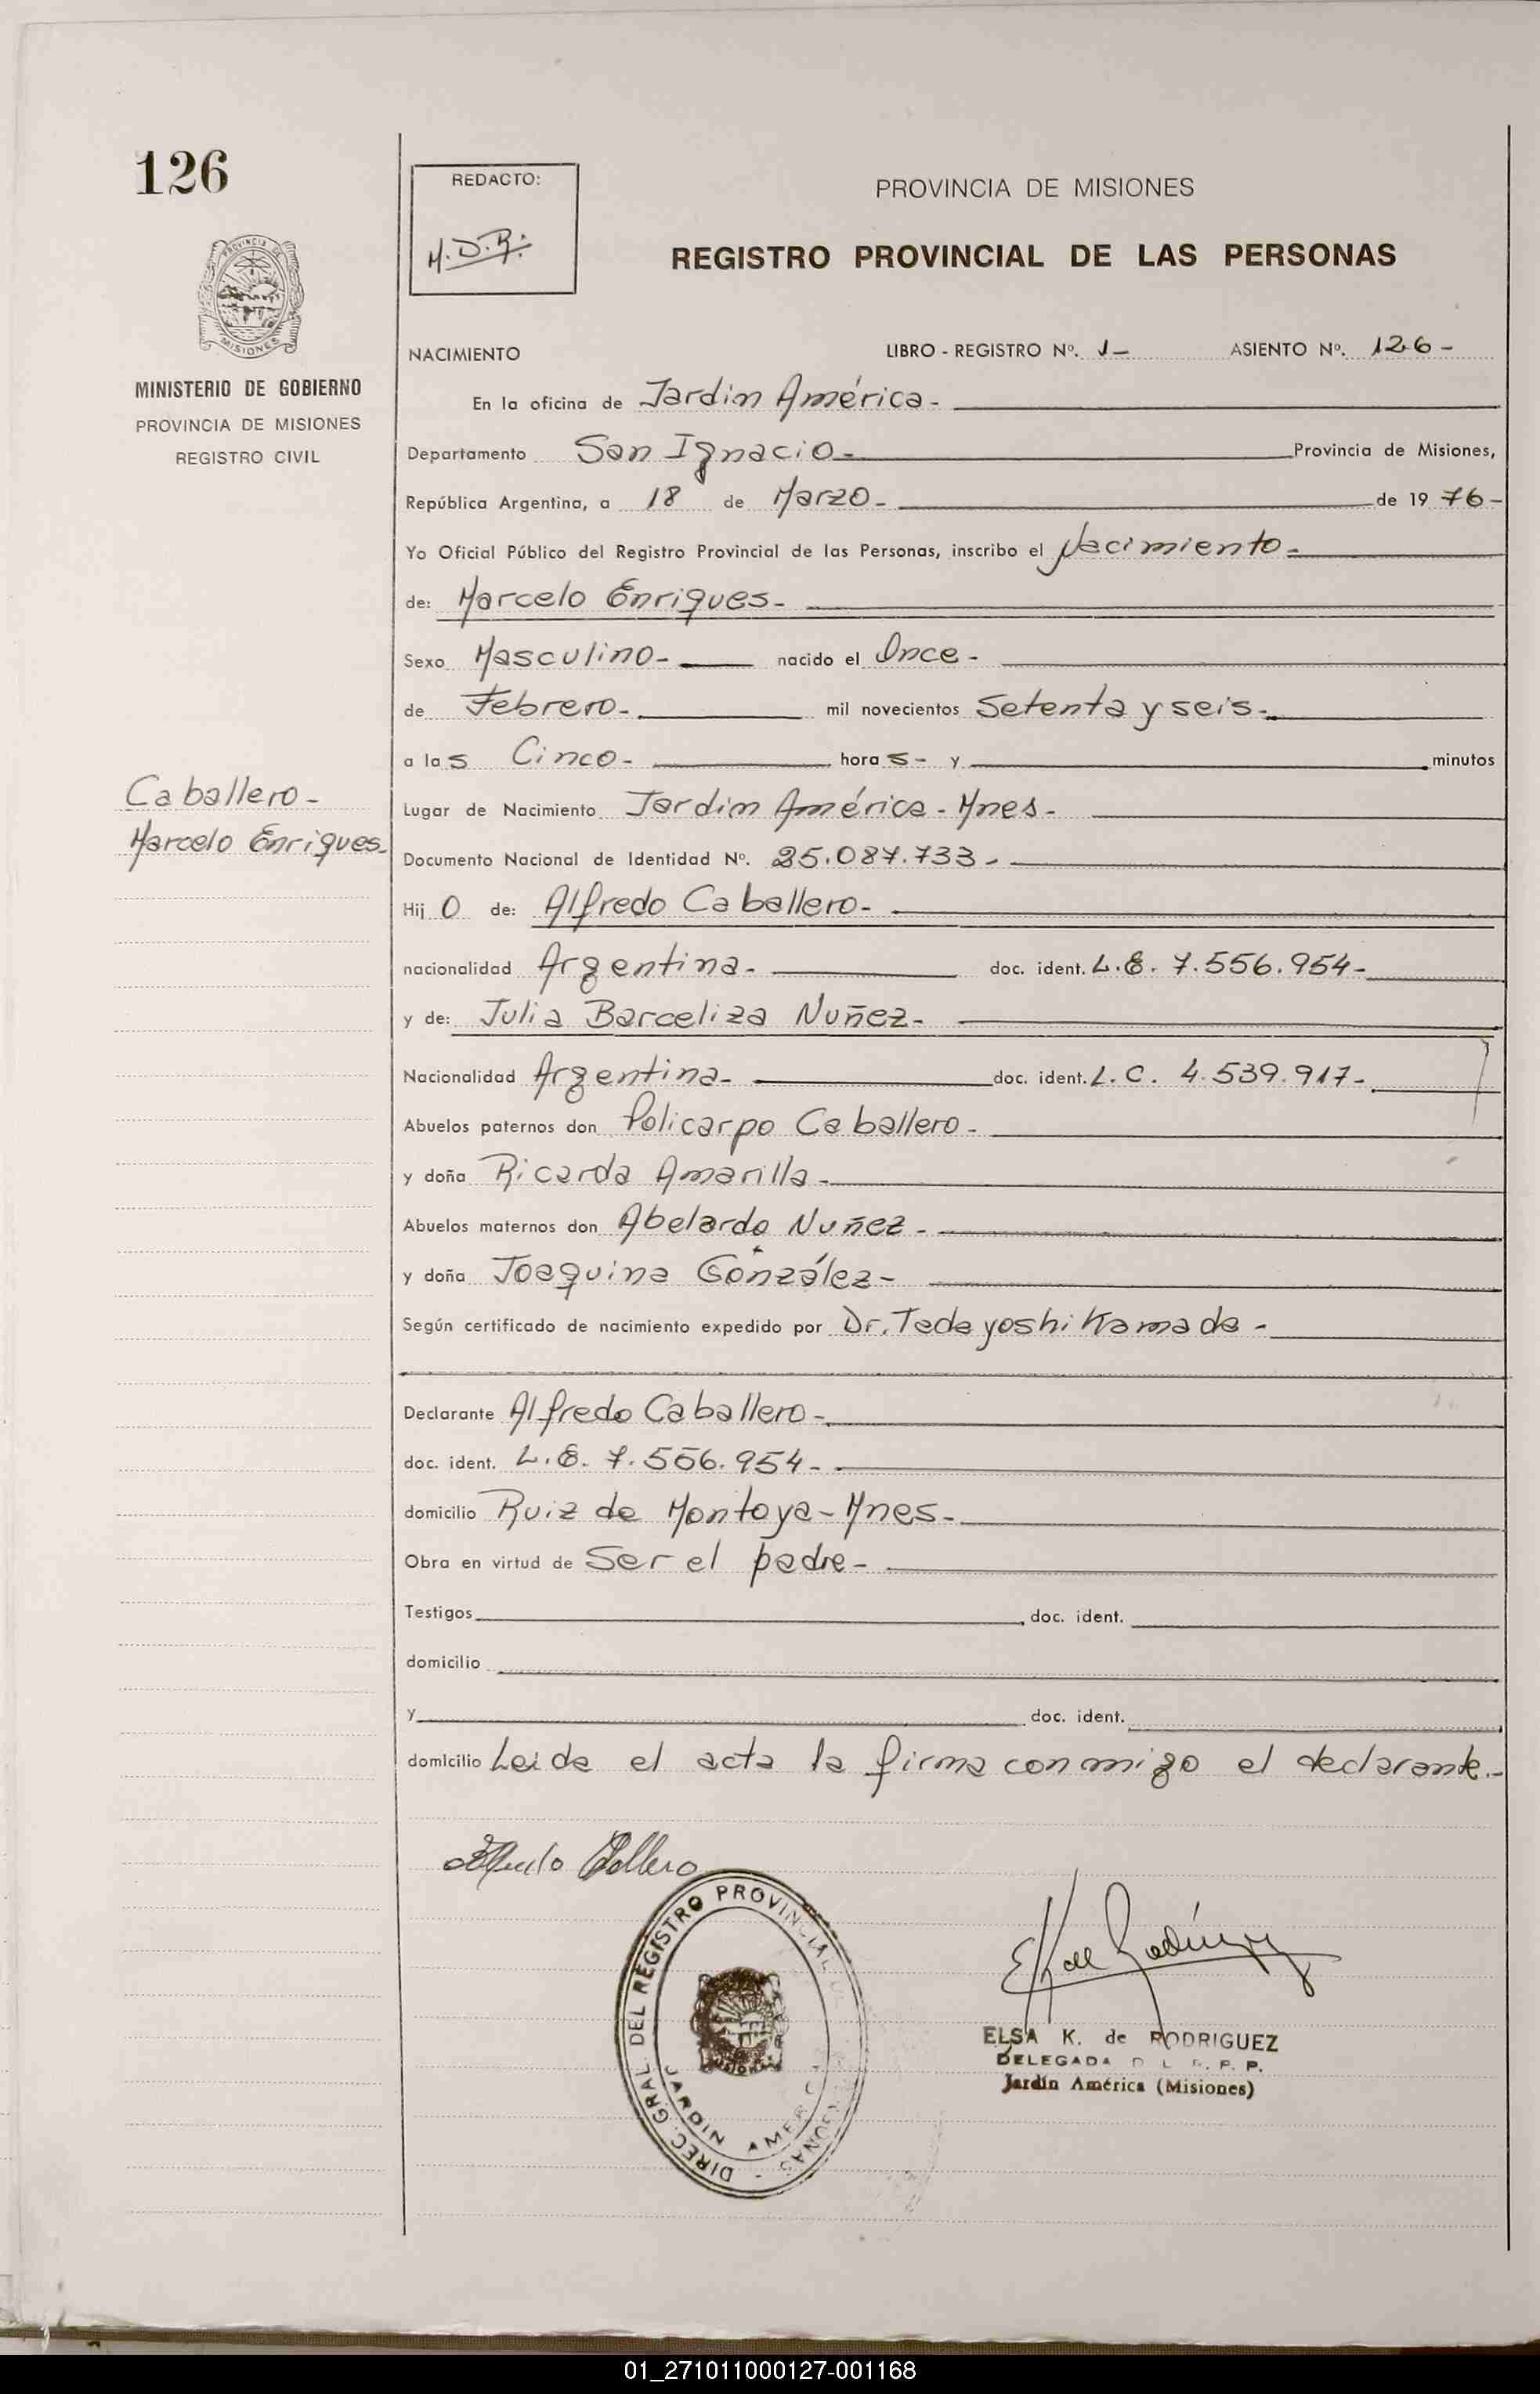 126
REDACTO:
M.D.R.
PROVINCIA DE MISIONES
REGISTRO PROVINCIAL DE LAS PERSONAS
PROVINCIA DE
MISIONES
MINISTERIO DE GOBIERNO
PROVINCIA DE MISIONES
REGISTRO CIVIL
NACIMIENTO LIBRO - REGISTRO Nº. 1- ASIENTO Nº. 126-
En la oficina de Jardin América-
Departamento San Ignacio- Provincia de Misiones,
República Argentina, a 18 de Marzo- de 1976-
Yo Oficial Público del Registro Provincial de las Personas, inscribo el Nacimiento-
de: Marcelo Enriques-
Sexo Masculino- nacido el Once-
de Febrero- mil novecientos Setenta y seis-
a las Cinco- horas- y minutos
Caballero-
Marcelo Enriques-
Lugar de Nacimiento Jardin América-Mnes-
Documento Nacional de Identidad Nº. 25.087.733-
Hijo de: Alfredo Caballero-
nacionalidad Argentina- doc. ident. L.E. 7.556.954-
y de: Julia Barceliza Nuñez-
Nacionalidad Argentina- doc. ident. L.C. 4.539.917-
Abuelos paternos don Policarpo Caballero-
y doña Ricarda Amarilla-
Abuelos maternos don Abelardo Nuñez-
y doña Joaquina González-
Según certificado de nacimiento expedido por Dr. Tadayoshi Kamada-
Declarante Alfredo Caballero-
doc. ident. L.E. 7.556.954-
domicilio Ruiz de Montoya-Mnes-
Obra en virtud de Ser el padre-
Testigos doc. ident.
domicilio
y doc. ident.
domicilio Leida el acta la firma conmigo el declarante.-
DIREC. GRAL. DEL REGISTRO PROVINCIAL DE LAS PERSONAS
JARDIN AMERICA
MISIONES
ELSA K. de RODRIGUEZ
DELEGADA D L R. P. P.
Jardín América (Misiones)
01_271011000127-001168